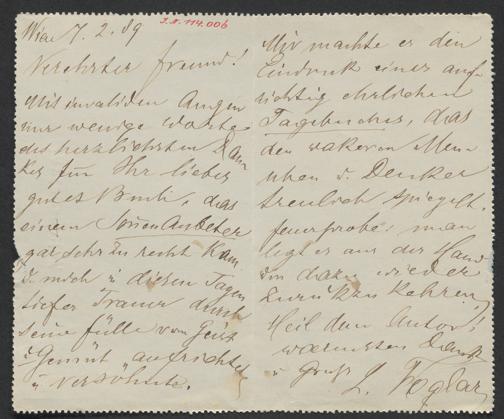 I.N. 114.006
Wien 7. 2. 89
Verehrter Freund!
Mit invaliden Augen
nur wenige Worte
des herzlichsten Dan
kes für Ihr liebes
gutes Buch, das
einem
gar sehr zu recht kam
u mich in diesen Tagen
tiefer Trauer durch
seine Fülle von Geist
u Gemüt aufrichtete
u versöhnte.
Mir machte es den
Eindruck eines auf
richtig ehrlichen
Tagebuches, das
den wakeren Men
schen u. Denker
treulich spiegelt.
Feuerprobe: man
legt es aus der Hand
um dazu wieder
zurückzukehren,
Heil dem Autor!
warmsten Dank
u Gruß